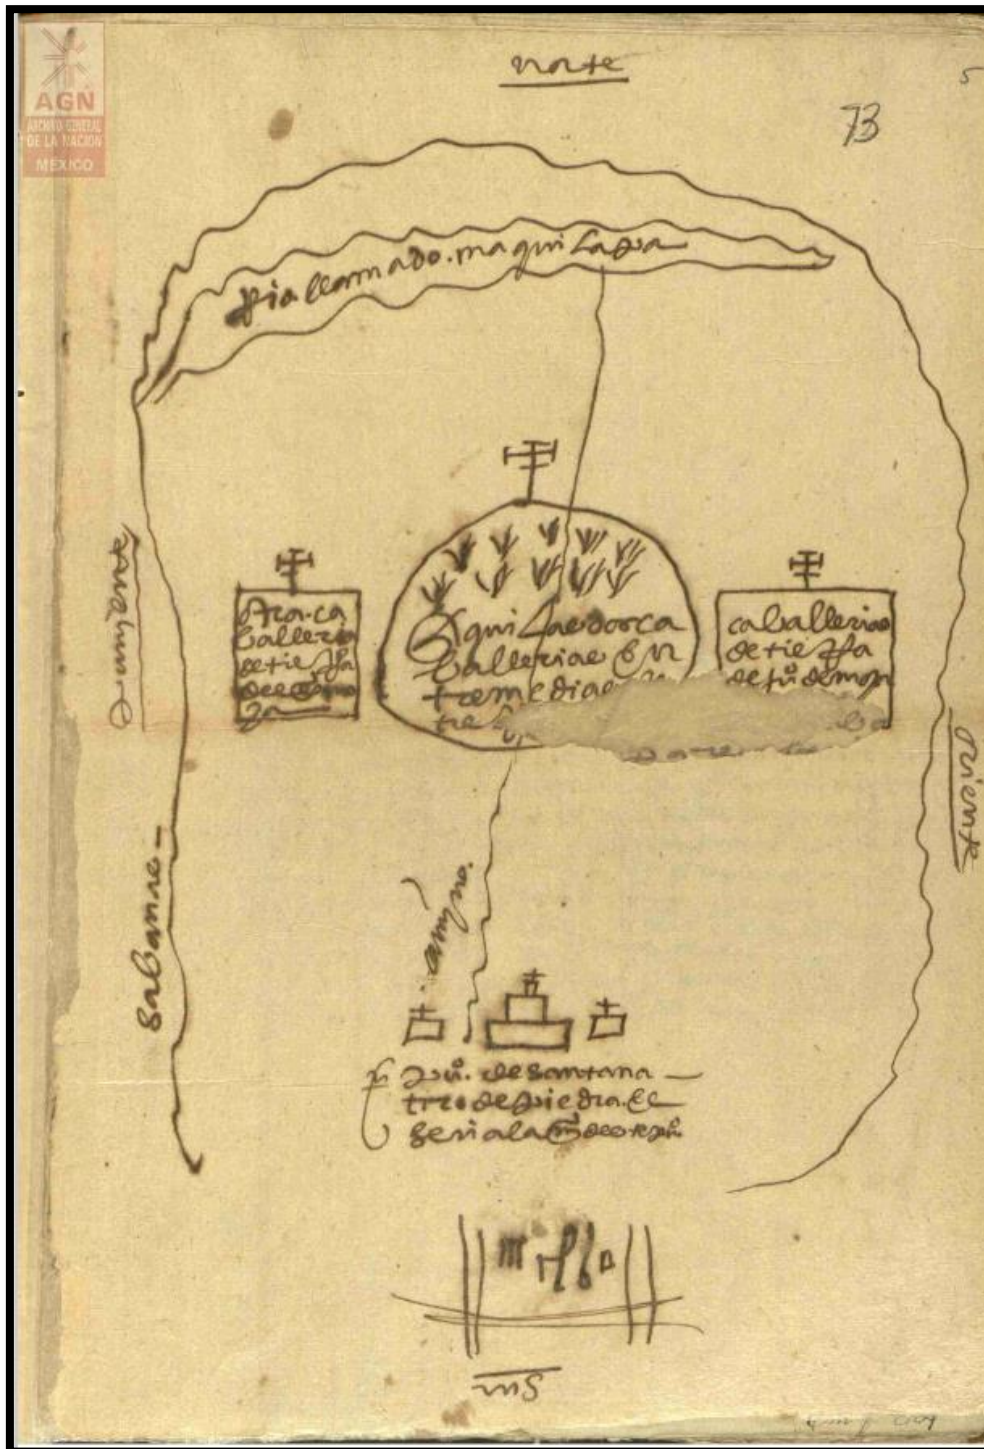 norte
5
73
AGN
ARCHIVO GENERAL
DE LA NACION
MEXICO
Rio llamado. maquilapa
puniente
otra ca
balleria
de tierra
aqui las dos ca
ballerias en
tre medias
tie
caballerias
de tierra
de
oriente
sabanas
camyno.
pu.º de santana
tiro de piedra. el
señala este pu.º
sur